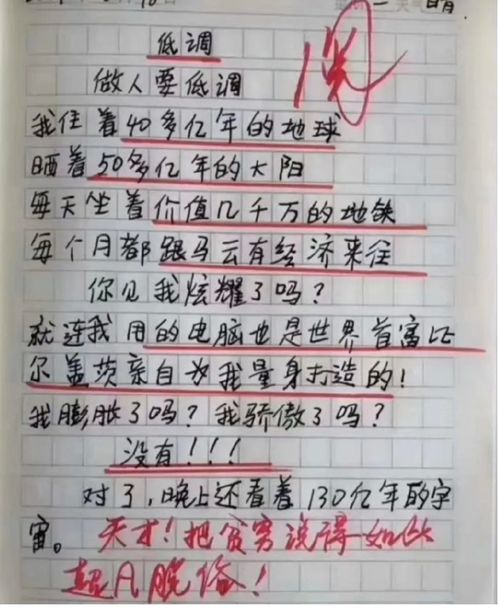 晴
低调
做人要低调
我住着40多亿年的地球
晒着50多亿年的太阳
每天坐着价值几千万的地铁
每个月都跟马云有经济来往
你见我炫耀了吗？
就连我用的电脑也是世界首富比
尔盖茨亲自为我量身打造的！
我膨胀了吗？我骄傲了吗？
没有！！！
对了，晚上还看着130亿年的宇
宙。天才！把贫穷说得如此
超凡脱俗！